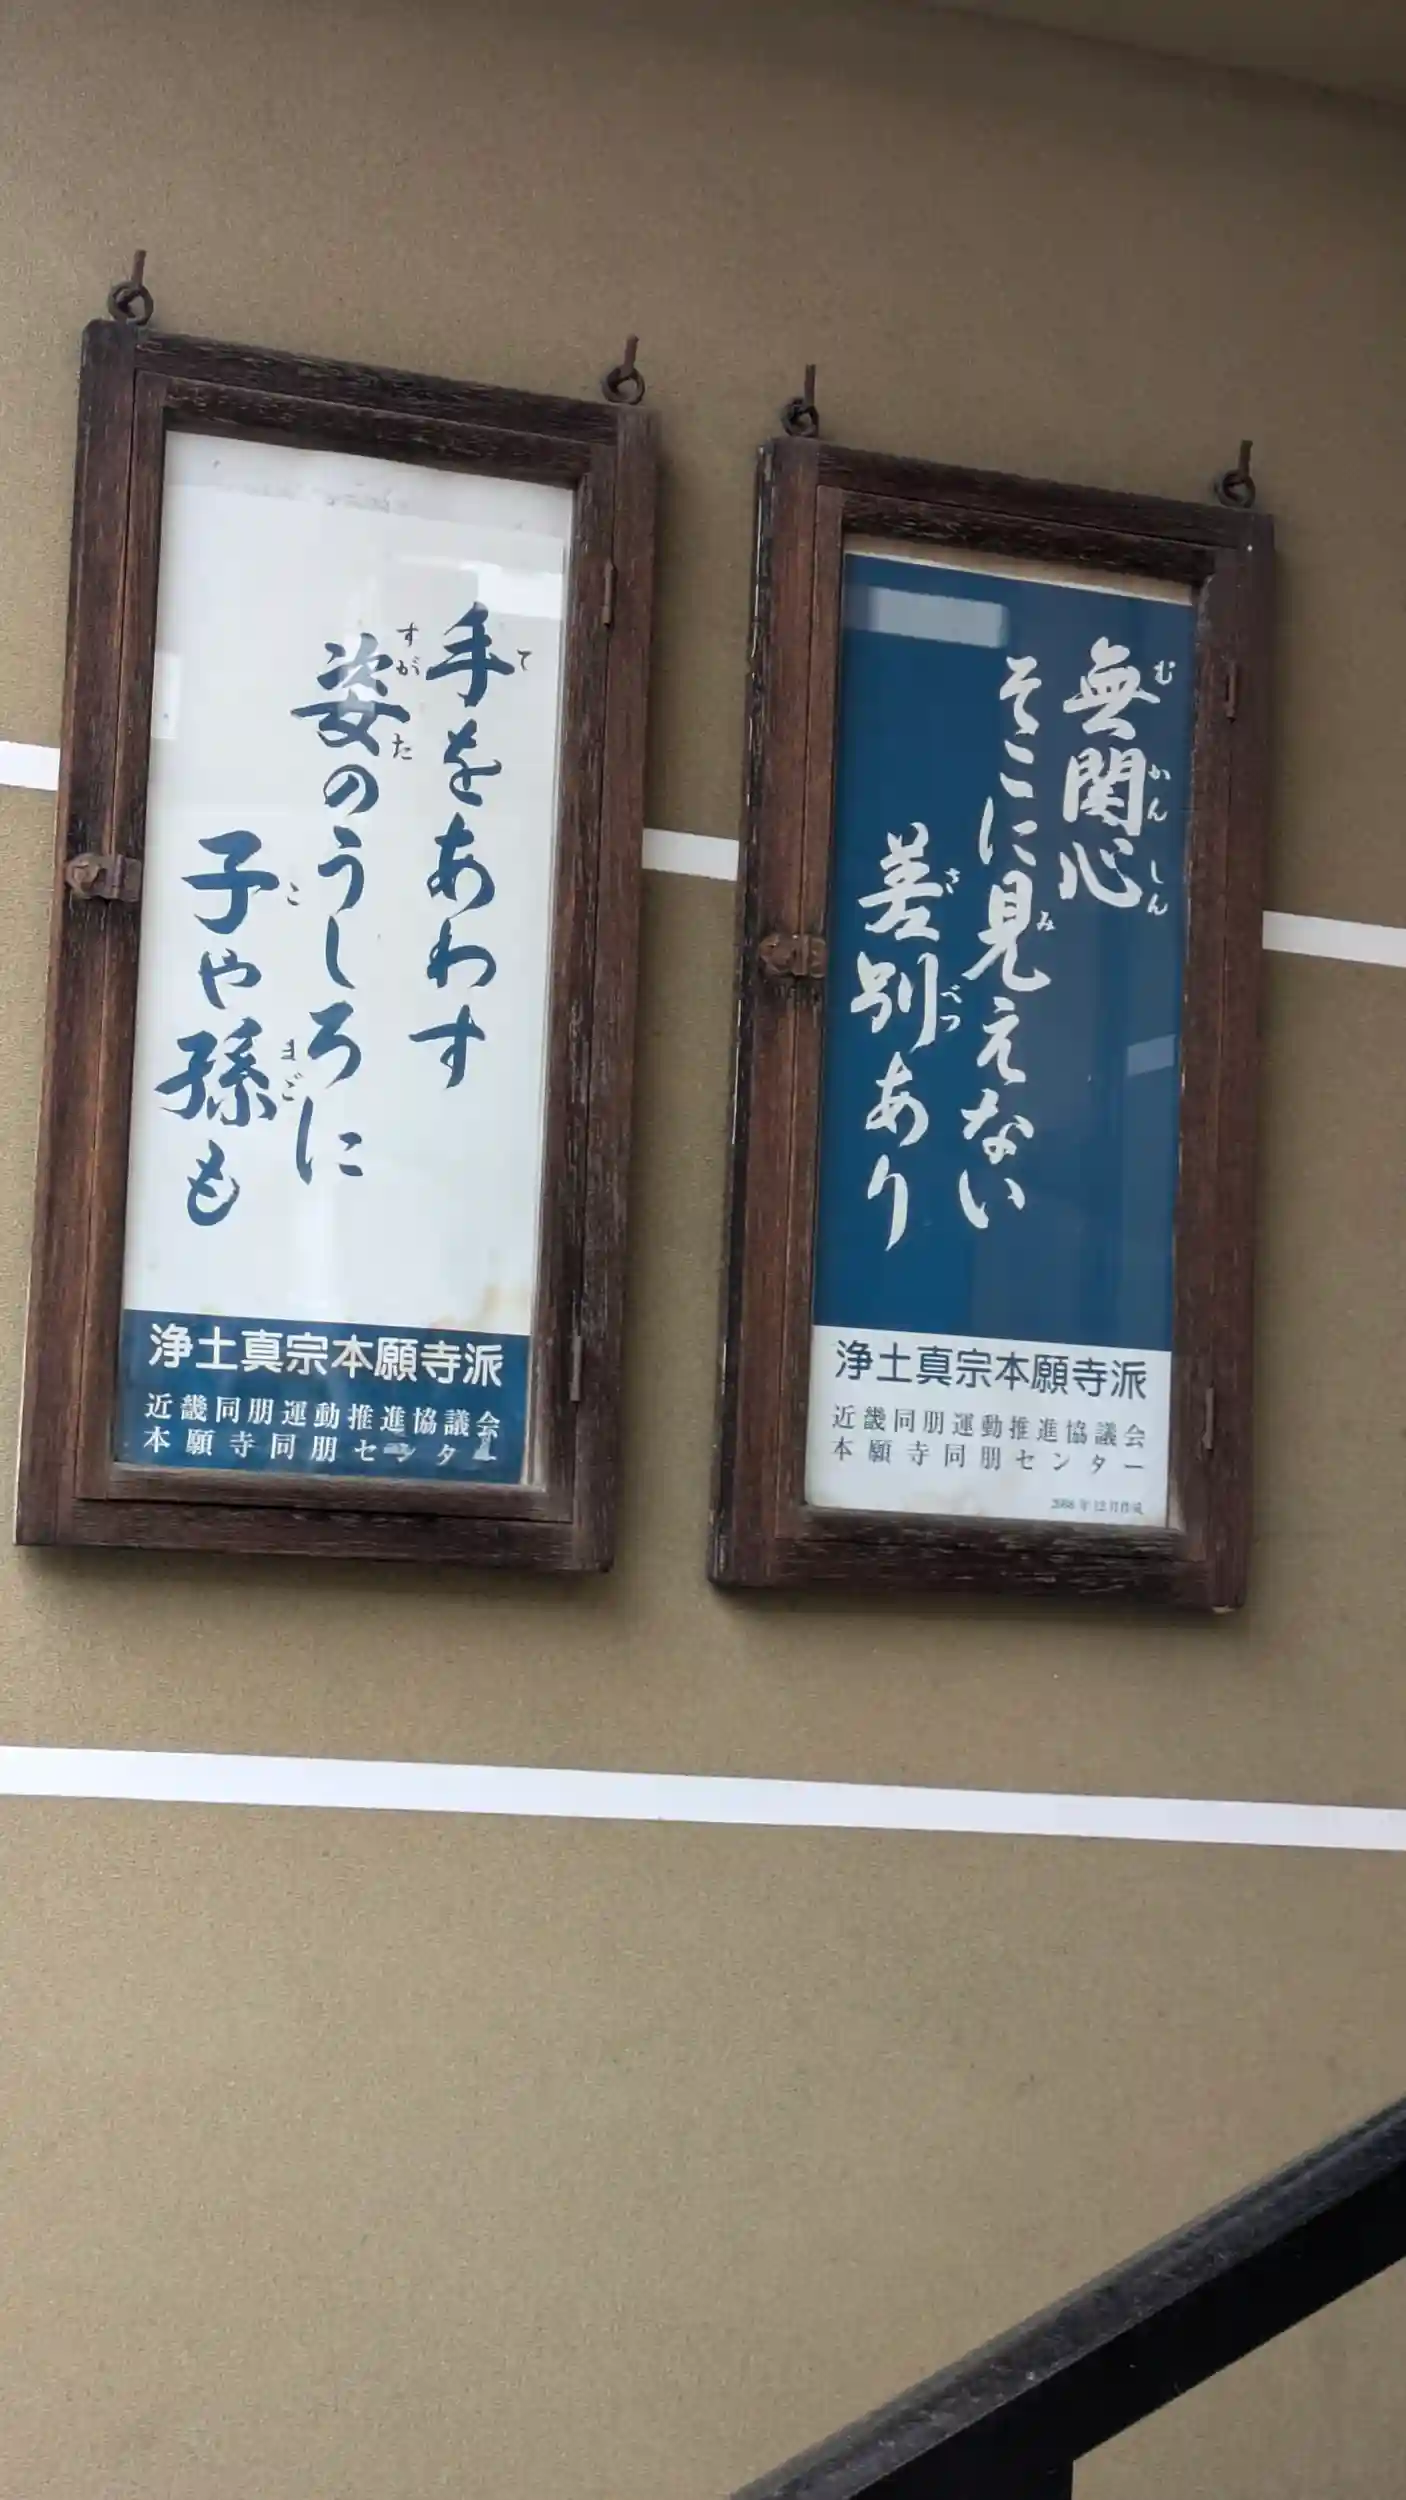 無関心
そこに見えない
差別あり
浄土真宗本願寺派
近畿同朋運動推進協議会
本願寺同朋センター
手をあわす
姿のうしろに
子や孫も
浄土真宗本願寺派
近畿同朋運動推進協議会
本願寺同朋センター